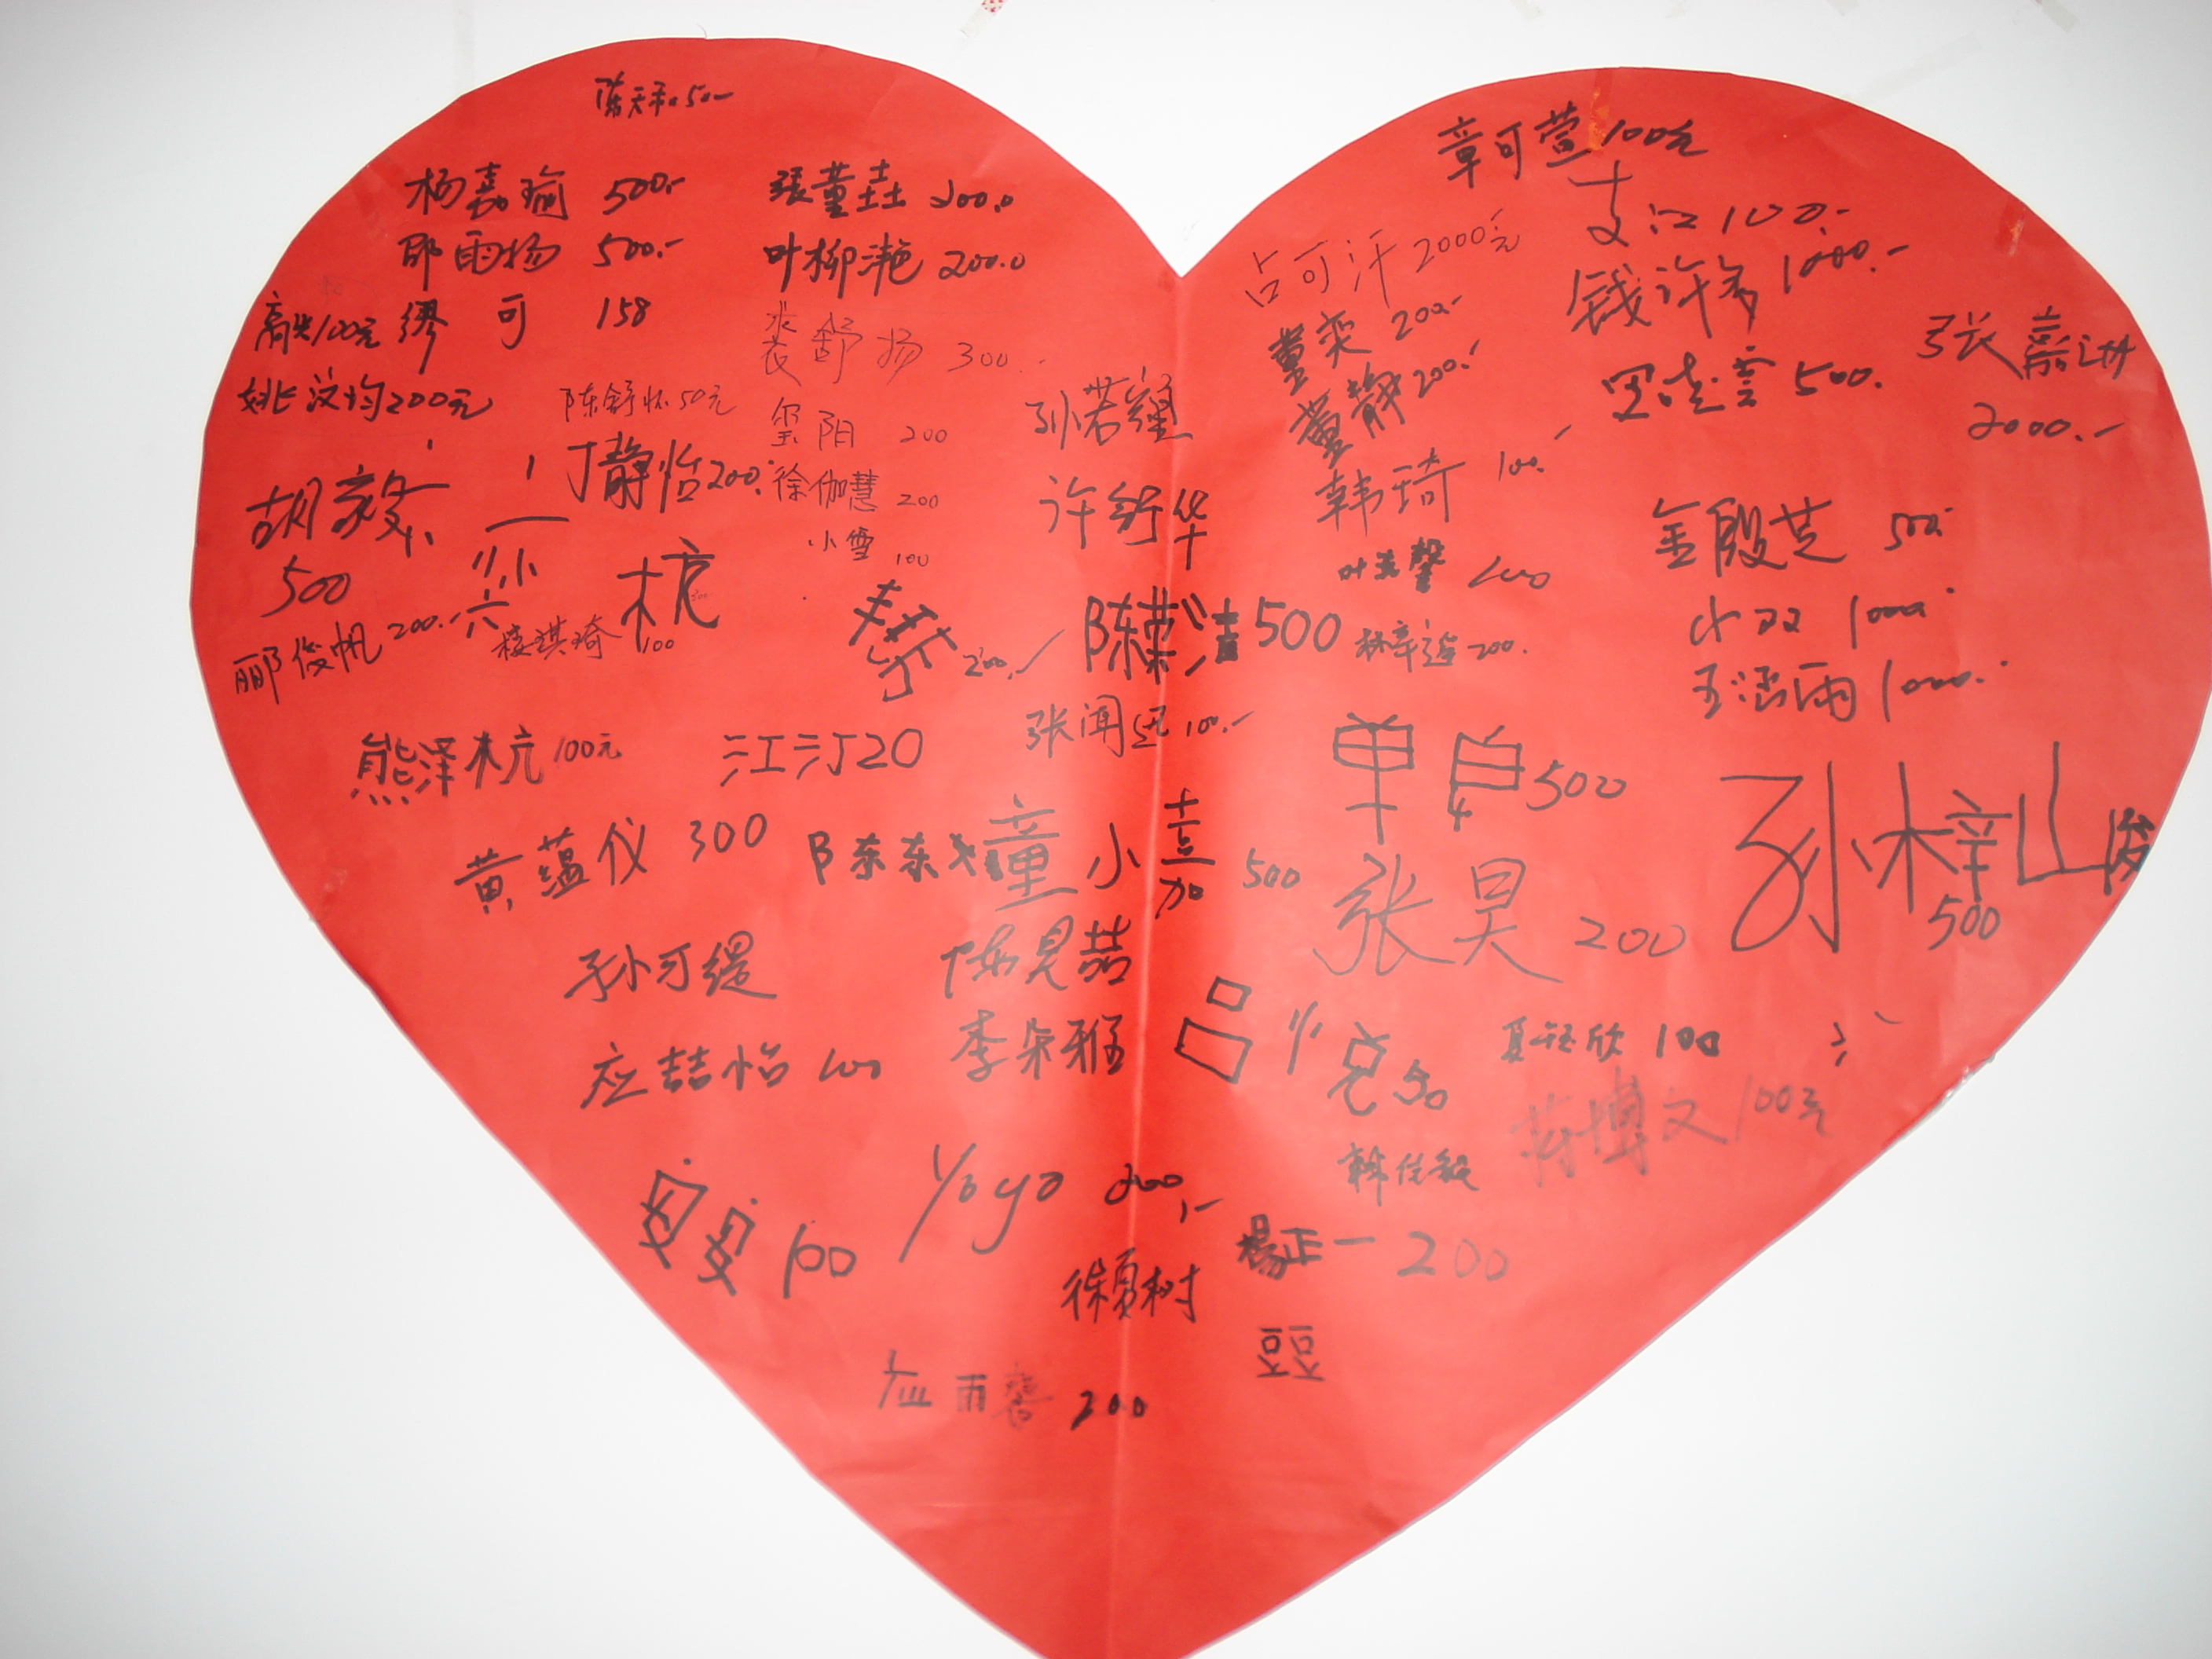 杨嘉瑜 500.-
邵雨扬 500.-
缪可 158
高
100元
姚汶均200元
陈舒怀50元
丁静怡200.
胡
500
郦俊帆 200.-
杭
琪琦 100
张董垚 200.0
叶柳滟 200.0
裘舒扬 300.-
玺阳 200
徐伽慧 200
小雪 100
孙若缠
许纾华
200.-
陈
洁500
张闻
100.-
熊泽杭100元
江汀20
黄蕴仪 300
陈东
童小嘉 500
孙可缇
陈见喆
应喆怡 200
李朵雅
100
Yoyo 200.-
徐夏树
应雨
200
章可萱100元
占可汗2000元
江100.-
钱许多1000.-
董奕 200.-
董静200.-
云 500.
张
2000.-
韩琦 100.-
叶
馨 200
林辛
200.
金殷芝 500.
小双 1000.
王涵雨1000.-
单
500
张昊 200
孙梓峻
500
吕悦50
夏钰欣 100
蒋博文100元
韩佳毅
杨正一 200
豆豆